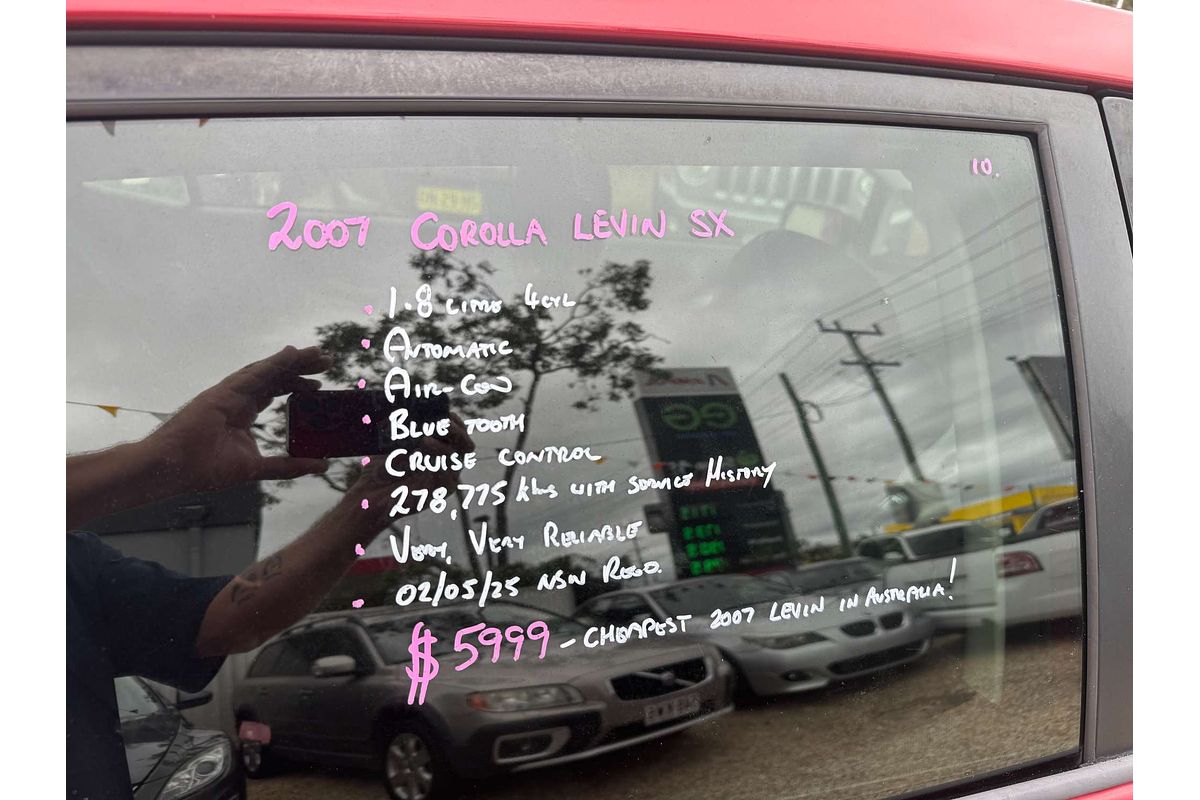 10.
2007 COROLLA LEVIN SX
• 1.8 LITRE 4CYL
• AUTOMATIC
• AIR-CON
• BLUE TOOTH
• CRUISE CONTROL
• 278,775 kms WITH SERVICE HISTORY
• VERY, VERY RELIABLE
• 02/05/25 NSW REGO.
$5999 - CHEAPEST 2007 LEVIN IN AUSTRALIA!